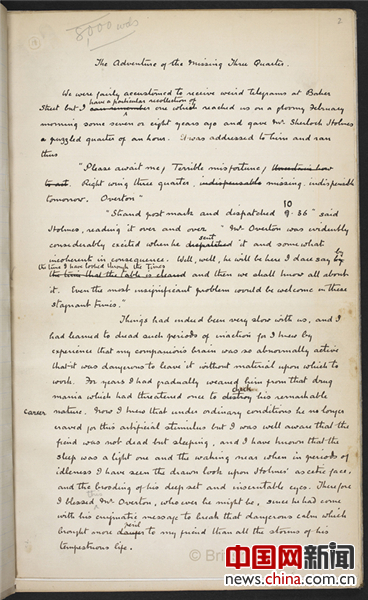 8,000 words
2
The Adventure of the Missing Three Quarter.
We were fairly accustomed to receive weird telegrams at Baker
have a particular recollection of
Street but I can remember one which reached us on a gloomy February
morning some seven or eight years ago and gave Mr Sherlock Holmes
a puzzled quarter of an hour. It was addressed to him and ran
thus
"Please await me / Terrible misfortune / Uncertain how
to act. Right wing three quarter, indispensable missing. indispensible
tomorrow. Overton"
10
"Strand post mark and dispatched 9.36" said
Holmes, reading it over and over "Mr Overton was evidently
sent
considerably excited when he dispatched it and somewhat
incoherent in consequence. Well, well, he will be here I dare say by
by
the time I have looked through the Times
the time that the table is cleared and then we shall know all about
it. Even the most insignificant problem would be welcome in these
stagnant times."
Things had indeed been very slow with us, and I
had learned to dread such periods of inaction for I knew by
experience that my companion's brain was so abnormally active
that it was dangerous to leave it without material upon which to
work. For years I had gradually weaned him from that drug
check
mania which had threatened once to destroy his remarkable
career
nature. Now I knew that under ordinary conditions he no longer
craved for this artificial stimulus but I was well aware that the
fiend was not dead but sleeping, and I have known that the
sleep was a light one and the waking near when in periods of
idleness I have seen the drawn look upon Holmes' ascetic face,
and the brooding of his deep set and inscrutable eyes. Therefore
this
I blessed Mr. Overton, who ever he might be, since he had come
with his enigmatic message to break that dangerous calm which
peril
brought more danger to my friend than all the storms of his
tempestuous life.
© Bri
中国网新闻
news.china.com.cn